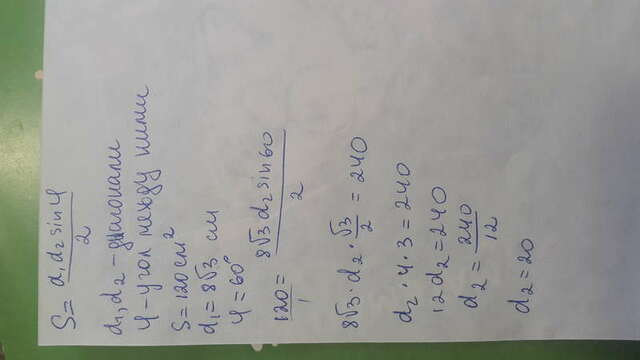 S = d₁d₂sinφ / 2
d₁, d₂ - диагонали
φ - угол между ними
S = 120 см²
d₁ = 8√3 см
φ = 60°
120/1 = 8√3 d₂ sin60 / 2
8√3 · d₂ · √3/2 = 240
d₂ · 4 · 3 = 240
12d₂ = 240
d₂ = 240/12
d₂ = 20